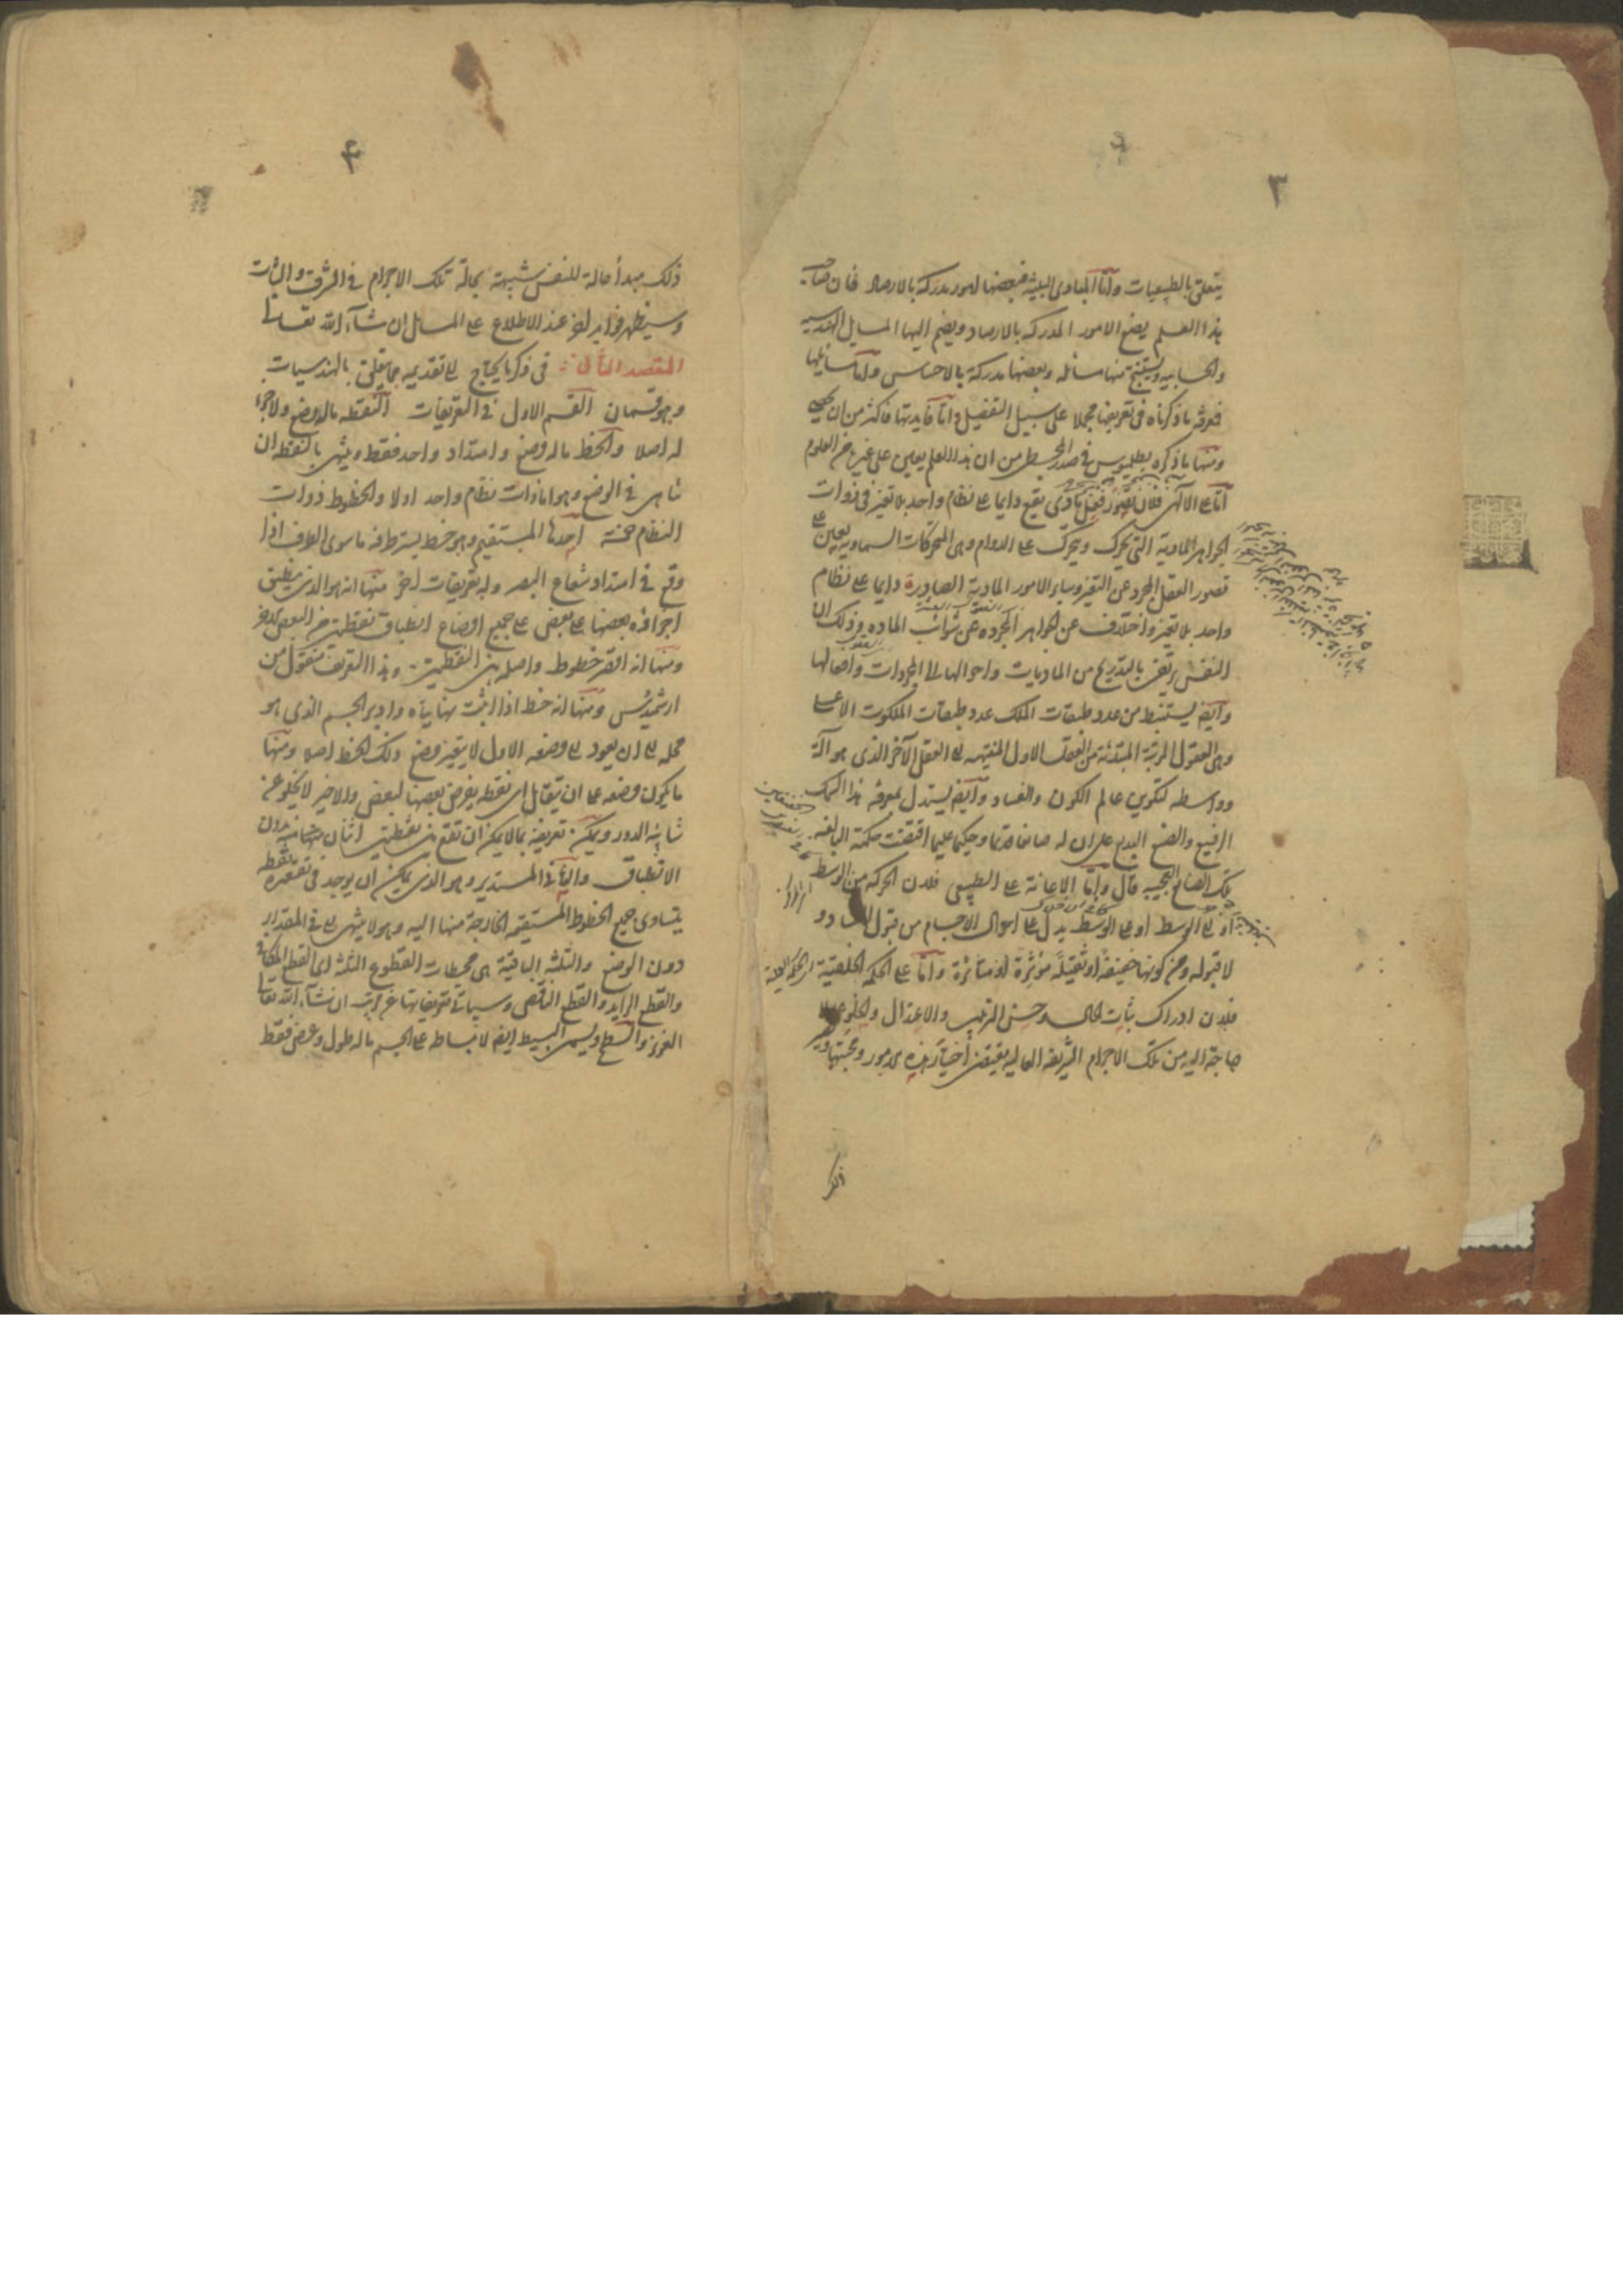 ٣
يتعلق بالطبيعيات واما المبادى البينة فبعضها امور مدركة بالارصاد فان صاحب
هذا العلم يضع الامور المدركه بالارصاد ويضم اليها المسايل الهندسيه
والحسابيه ويستنتج منها مسائله وبعضها مدركة بالاحساس واما مسايلها
فمعرفه ما ذكرناه فى تعريفها مجملا على سبيل التفصيل واما فايدتها فاكثر من ان يحصى
ومنها ما ذكره بطلميوس فى صدر المجسطى من ان هذا العلم يعين على غيره من العلوم
اما على الالهى فلان تصور فعل مادى يقع دايما على نظام واحد بلا تغير فى ذوات
الجواهر المادية التى تحرك وتتحرك على الدوام وهى المتحركات السماويه يعين على
تصور العقل المجرد عن التغير وساير الامور المادية الصادرة دايما على نظام
واحد بلا تغير واختلاف عن الجواهر المجرده عن شوائب الماده وذلك لان
النفس يرتقى بالتدريج من الماديات واحوالها الى المجردات وافعالها
وايضا يستنبط من عدد طبقات الملك عدد طبقات الملكوت الاعلى
وهى العقول المرتبة المبتدئة من العقل الاول المنتهيه الى العقل الآخر الذى هو آلة
وواسطه لتكوين عالم الكون والفساد وايضا يستدل بمعرفه هذا السمك
الرفيع والصنع البديع على ان له صانعا قديما وحكيما عليما اقتضت حكمته البالغه
تلك الصنايع العجيبه قال واما الاعانة على الطبيعى فلان الحركه من الوسط
او الى الوسط او على الوسط يدل على احوال الاجسام من قبول الفساد و
لا قبوله ومن كونها خفيفة او ثقيلة مؤثرة او متاثرة واما على الحكمه الخلقية
فلان ادراك ثبات الحال وحسن الترتيب والاعتدال والخلو عما لا
حاجة اليه من تلك الاجرام الشريفه العاليه يقتضى اختيار هذه الامور ومحبتها ويصير
ذلك
٤
ذلك مبدأ حالة للنفس شبيهة بحالة تلك الاجرام فى الشرف والثبات
وسيظهر فوايد اخر عند الاطلاع على المسايل ان شآء الله تعالى
المقصد الثانى فى ذكر ما يحتاج الى تقديمه مما يتعلق بالهندسيات
وهو قسمان القسم الاول فى التعريفات النقطه ماله وضع ولا جزء
له اصلا والخط ماله وضع وامتداد واحد فقط وينتهى بالنقطه ان
تناهى فى الوضع وهو اما ذات نظام واحد اولا والخطوط ذوات
النظام خمسة احدها المستقيم وهو خط يستر طرفه ما سوى الطرف اذا
وقع فى امتداد شعاع البصر وله تعريفات اخر منها انه هو الذى ينطبق
اجزاؤه بعضها على بعض على جميع اوضاع انطباق نقطتين من البعض الاخر
ومنها انه اقصر خطوط واصله بين النقطتين وهذا التعريف منقول من
ارشميدس ومنها انه خط اذا اثبت نهايتاه وادير الجسم الذى هو
محله الى ان يعود الى وضعه الاول لا يتغير وضع ذلك الخط اصلا ومنها
ما يكون وضعه على ان يتقابل اى نقطه يفرض بعضها لبعض والاخير لا يخلو عن
شايبه الدور ويمكن تعريفه بما لا يمكن ان تقع بين نقطتين اثنان متجانسه بدون
الانطباق والثانى المستدير وهو الذى يمكن ان يوجد فى تقعيره نقطه
يتساوى جميع الخطوط المستقيمه الخارجة منها اليه وهو لا ينتهى الا فى المقدار
دون الوضع والثلثه الباقية هى محيطات القطوع الثلثه اى القطع المكافى
والقطع الزايد والقطع الناقص وسياتى تعريفاتها عن قريب ان شآء الله تعالى
العزيز والسطح ويسمى البسيط ايضا لانبساطه على الجسم ماله طول وعرض فقط